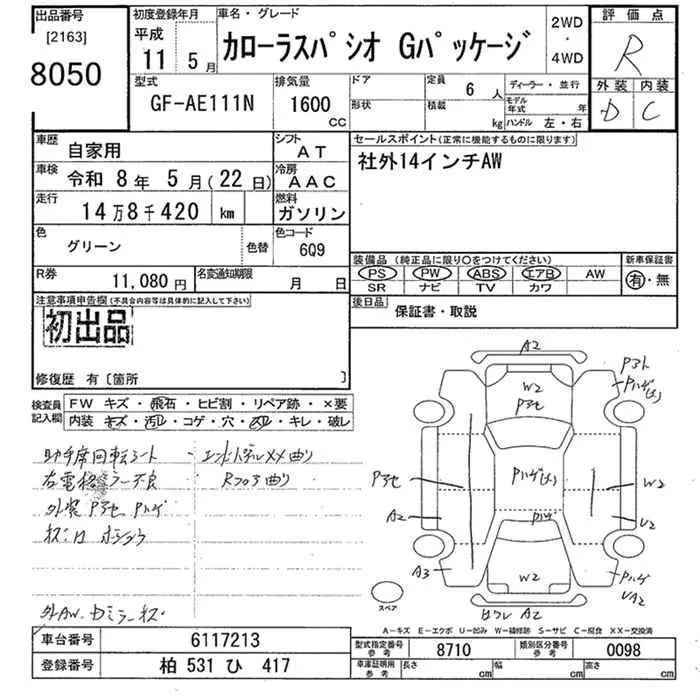 出品番号
[2163]
8050
初度登録年月
平成
11 5月
車名・グレード
カローラスパシオ Gパッケージ
2WD
・
4WD
評価点
R
外装 内装
D C
型式
GF-AE111N
排気量
1600
CC
ドア
形状
定員
6 人
積載
kg
ディーラー・並行
モデル年式 年
ハンドル 左・右
車歴
自家用
シフト
AT
車検
令和 8年 5月(22日)
冷房
AAC
走行
14万8千420 km
燃料
ガソリン
色
グリーン
色替
色コード
6Q9
R券
11,080円
名変通知期限
月 日
セールスポイント(正常に機能するものに限ります)
社外14インチAW
装備品 (純正品に限り○をつけてください)
PS PW ABS エアB AW
SR ナビ TV カワ
新車保証書
有・無
後日品
保証書・取説
注意事項申告欄(不具合内容等は具体的に記入して下さい)
初出品
修復歴 有〔箇所 〕
検査員記入欄
FW キズ・飛石・ヒビ割・リペア跡・×要
内装 キズ・汚レ・コゲ・穴・スレ・キレ・破レ
助手席回転シート
右電格ミラー不良
外装 Pアセ Pハゲ
Rフロア曲り
A2
W2
Pアセ
Pハゲ
Pハゲ
Pアセ
A2
A3
W2
U2
W2
Pハゲ
UA2
A2
スペア
A-キズ E-エクボ U-凹み W-補修跡 S-サビ C-腐食 XX-交換済
車台番号
6117213
登録番号
柏 531 ひ 417
型式指定番号
参考
8710
類別区分番号
参考
0098
車庫証明用
参考
長さ cm
幅 cm
高さ cm